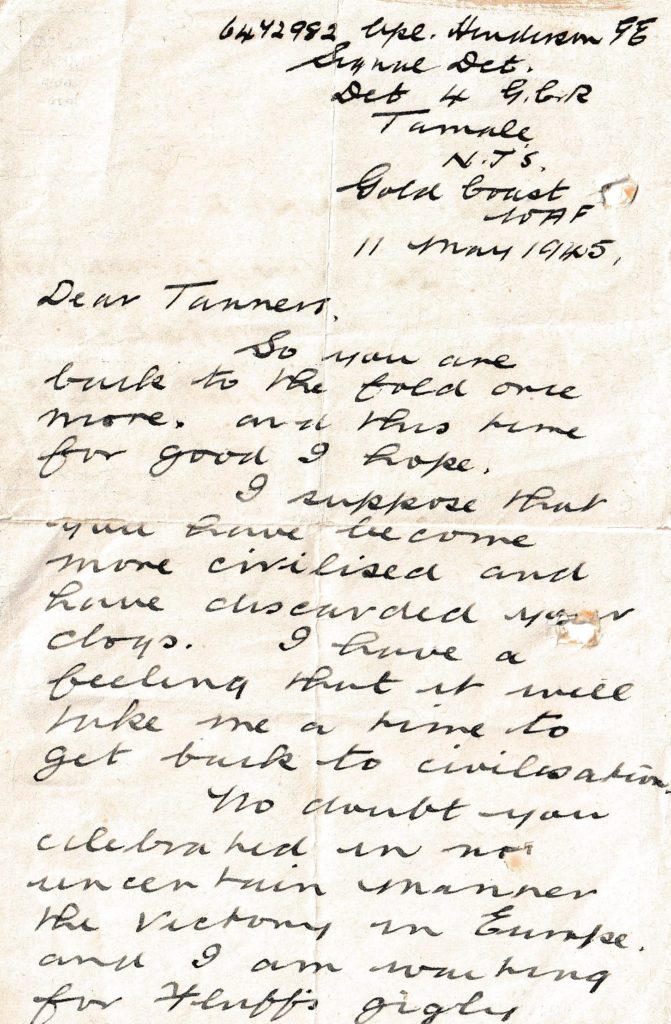 6472982 Cpl. Henderson FE
Signal Det.
Det 4 G.C.R
Tamale
N.T's.
Gold Coast
WAF
11 May 1945.
Dear Tanners,
So you are
back to the fold once
more. and this time
for good I hope.
I suppose that
you have become
more civilised and
have discarded your
clogs. I have a
feeling that it will
take me a time to
get back to civilisation.
No doubt you
celebrated in no
uncertain manner
the Victory in Europe.
and I am waiting
for Fluff's gigly